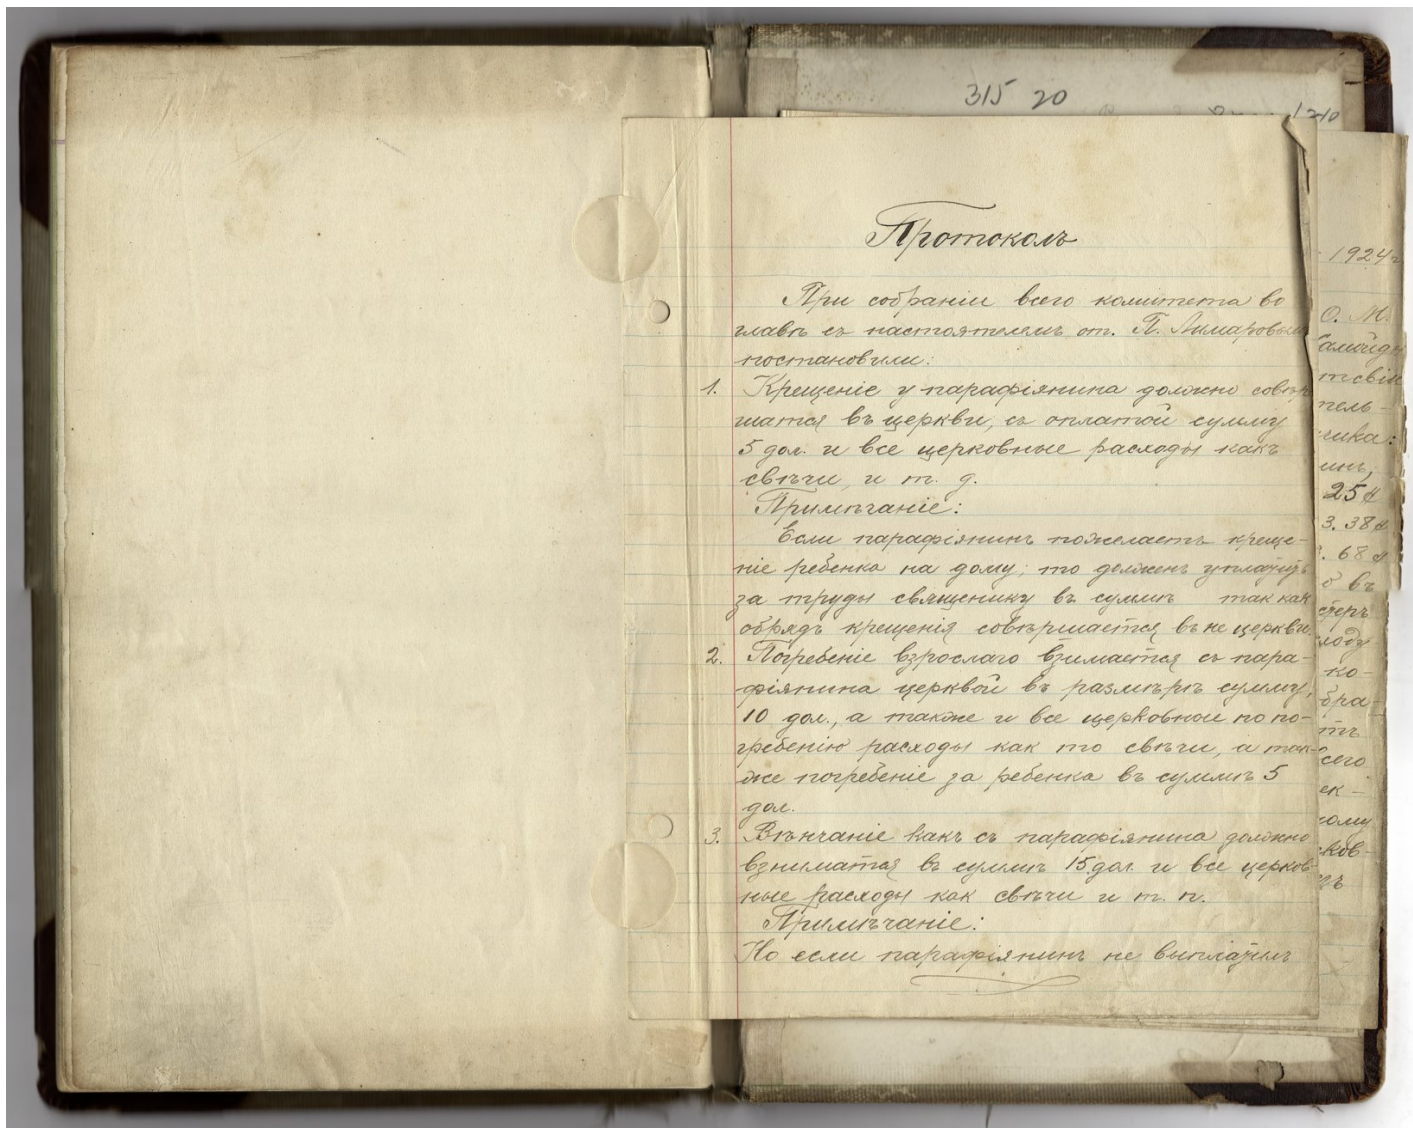 315 20
1210
Протоколъ
При собраніи всего комитета во
главѣ съ настоятелемъ от. П. Лимаровым
постановили:
1. Крещеніе у парафіянина должно совѣр
шатся въ церкви, съ оплатой сумму
5 дол. и все церковные расходы какъ
свѣчи, и т. д.
Примѣчаніе:
Если парафіянинъ пожелаетъ креще-
ніе ребенка на дому; то долженъ уплатить
за труды священику въ суммѣ так как
обрядъ крещенія совѣршается въ не церкви.
2. Погребеніе взрослаго взимается съ пара-
фіянина церквой въ размѣрѣ сумму,
10 дол., а также и все церковные по по-
гребенію расходы как то свѣчи, а так-
же погребеніе за ребенка въ суммѣ 5
дол.
3. Вѣнчаніе какъ съ парафіянина должно
взниматся въ суммѣ 15 дол. и все церков-
ные расходы как свѣчи и т. п.
Примѣчаніе:
Но если парафіянинъ не выплатилъ
1924 г
О. М.
тель-
чика:
25 ¢
3. 38 ¢
. 68 ¢
въ
ко-
бра-
тъ
сего
ек-
кому
ков-